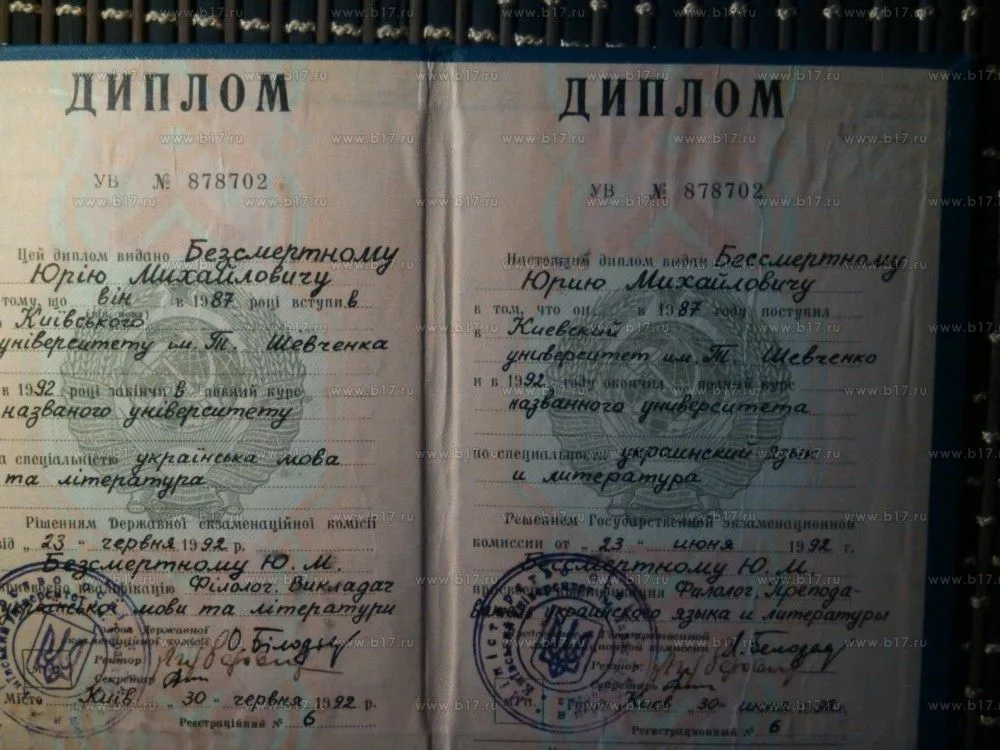 ДИПЛОМ
УВ № 878702
Цей диплом видано Безсмертному
Юрію Михайловичу
тому, що він в 1987 році вступив
Київського
університету ім. Т. Шевченка
в 1992 році закінчив повний курс
названого університету
спеціальністю українська мова
та література
Рішенням Державної екзаменаційної комісії
від „23" червня 1992 р.
Безсмертному Ю. М.
кваліфікацію Філолог. Викладач
української мови та літератури
Державної
екзаменаційної комісії Ю. Білод
Ректор
Секретар
Місто Київ „30" червня 1992 р.
Реєстраційний № 6
ДИПЛОМ
УВ № 878702
Настоящий диплом выдан Бессмертному
Юрию Михайловичу
в том, что он в 1987 году поступил
в Киевский
университет им. Т. Шевченко
и в 1992 году окончил полный курс
названного университета
по специальности украинский язык
и литература
Решением Государственной экзаменационной
комиссии от „23" июня 1992 г.
Бессмертному Ю. М.
квалификация Филолог. Препода-
украинского языка и литературы
Государственной
комиссии
Ректор
Секретарь
М.П. Город Киев „30" июня 1992 г.
Регистрационный № 6
www.b17.ru